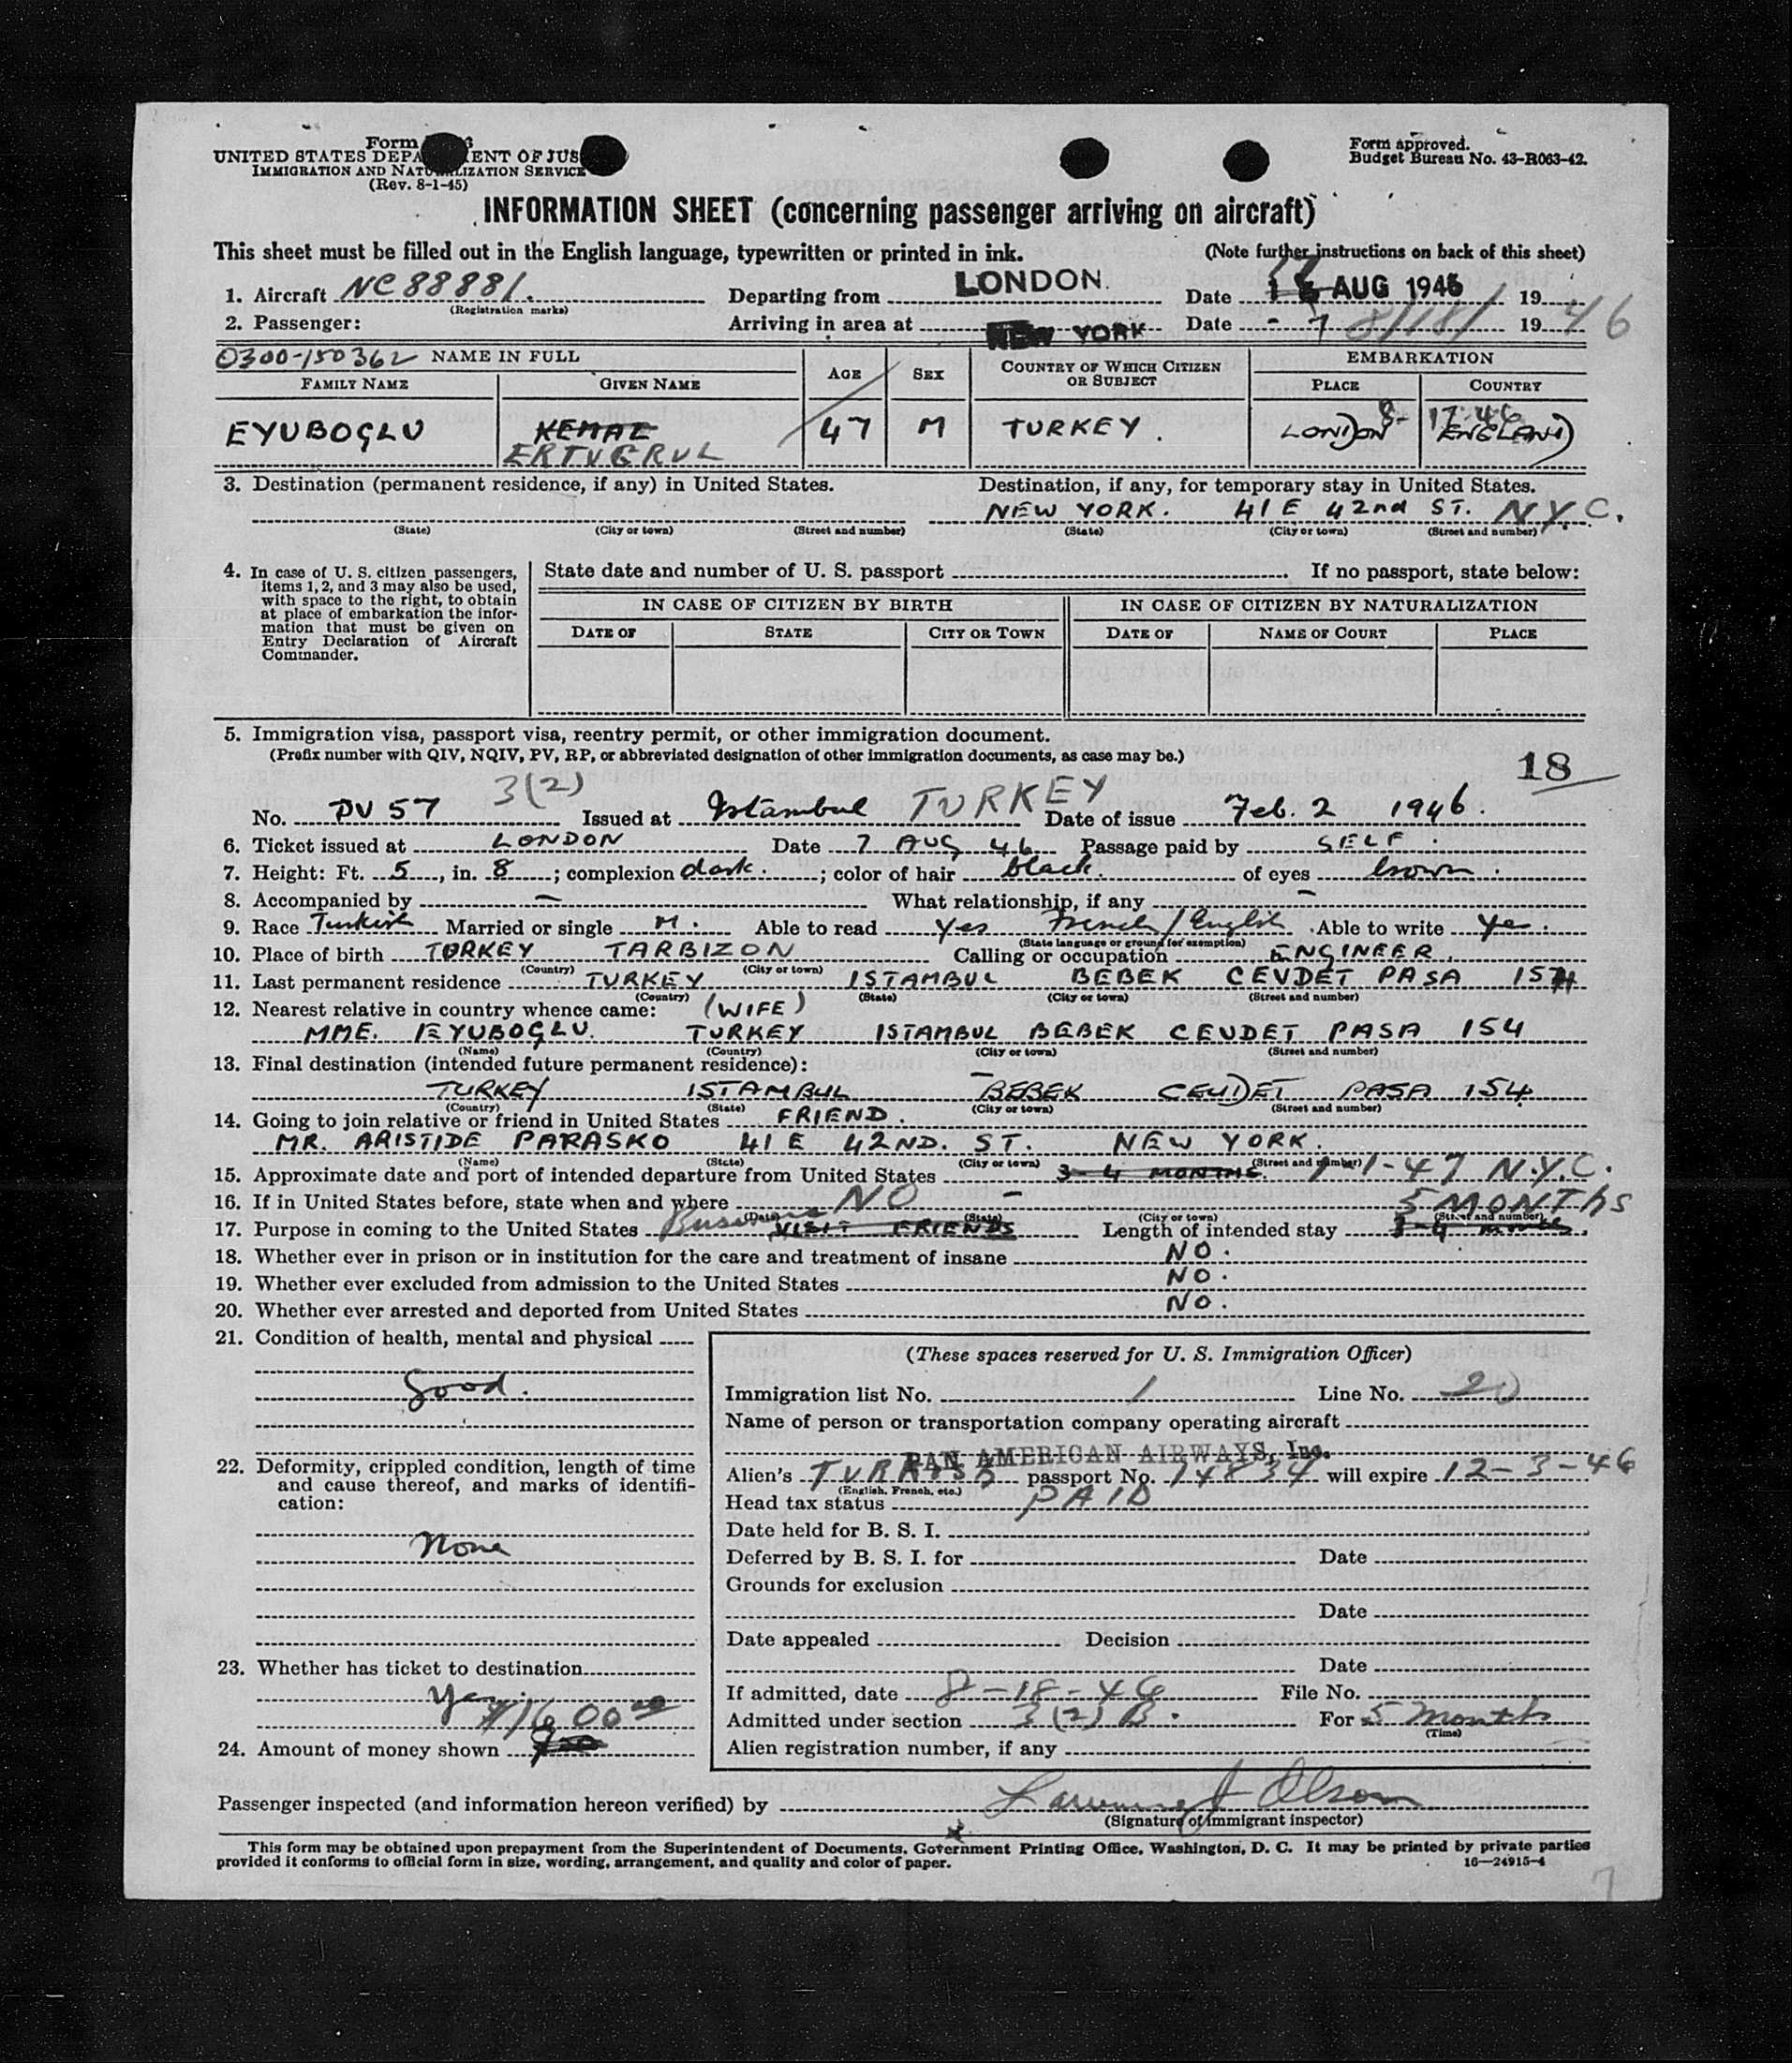 Form
UNITED STATES DEPA ENT OF JUS
IMMIGRATION AND NATURALIZATION SERVICE
(Rev. 8-1-45)
Form approved.
Budget Bureau No. 43-R063-42.
INFORMATION SHEET (concerning passenger arriving on aircraft)
This sheet must be filled out in the English language, typewritten or printed in ink. (Note further instructions on back of this sheet)
1. Aircraft NC 88881. Departing from LONDON. Date AUG 1946 19
(Registration marks)
2. Passenger: Arriving in area at NEW YORK Date 8/18/ 1946
0300-150362 NAME IN FULL AGE SEX COUNTRY OF WHICH CITIZEN OR SUBJECT EMBARKATION
FAMILY NAME GIVEN NAME PLACE COUNTRY
8-17-46
EYUBOGLU KEMAL 47 M TURKEY. LONDON ENGLAND
ERTUGRUL
3. Destination (permanent residence, if any) in United States. Destination, if any, for temporary stay in United States.
NEW YORK. 41 E 42nd ST. N.Y.C.
(State) (City or town) (Street and number) (State) (City or town) (Street and number)
4. In case of U. S. citizen passengers, items 1, 2, and 3 may also be used, with space to the right, to obtain at place of embarkation the information that must be given on Entry Declaration of Aircraft Commander.
State date and number of U. S. passport . If no passport, state below:
IN CASE OF CITIZEN BY BIRTH IN CASE OF CITIZEN BY NATURALIZATION
DATE OF STATE CITY OR TOWN DATE OF NAME OF COURT PLACE
5. Immigration visa, passport visa, reentry permit, or other immigration document.
(Prefix number with QIV, NQIV, PV, RP, or abbreviated designation of other immigration documents, as case may be.)
18
No. PV 57 3(2) Issued at Istambul TURKEY Date of issue Feb. 2 1946.
6. Ticket issued at LONDON Date 7 AUG 46 Passage paid by SELF.
7. Height: Ft. 5, in. 8; complexion dark.; color of hair black. of eyes brown.
8. Accompanied by — What relationship, if any —
9. Race Turkish Married or single M. Able to read yes French / English Able to write yes.
(State language or ground for exemption)
10. Place of birth TURKEY TARBIZON Calling or occupation ENGINEER.
(Country) (City or town)
11. Last permanent residence TURKEY ISTAMBUL BEBEK CEVDET PASA 154
(Country) (State) (City or town) (Street and number)
12. Nearest relative in country whence came: (WIFE)
MME. EYUBOGLU. TURKEY ISTAMBUL BEBEK CEVDET PASA 154
(Name) (Country) (City or town) (Street and number)
13. Final destination (intended future permanent residence):
TURKEY ISTAMBUL BEBEK CEVDET PASA 154
(Country) (State) (City or town) (Street and number)
14. Going to join relative or friend in United States FRIEND.
MR. ARISTIDE PARASKO 41 E 42ND. ST. NEW YORK.
(Name) (State) (City or town) (Street and number)
15. Approximate date and port of intended departure from United States 3-4 MONTHS. 1-1-47 N.Y.C.
16. If in United States before, state when and where NO —
(Date) (State) (City or town) (Street and number)
5 MONTHS
17. Purpose in coming to the United States Business VISIT FRIENDS Length of intended stay 3-4 months.
18. Whether ever in prison or in institution for the care and treatment of insane NO.
19. Whether ever excluded from admission to the United States NO.
20. Whether ever arrested and deported from United States NO.
21. Condition of health, mental and physical
Good.
22. Deformity, crippled condition, length of time and cause thereof, and marks of identification:
None
23. Whether has ticket to destination
Yes.
$1600 00
24. Amount of money shown
(These spaces reserved for U. S. Immigration Officer)
Immigration list No. 1 Line No. 20
Name of person or transportation company operating aircraft
PAN AMERICAN AIRWAYS, Inc.
Alien's TURKISH passport No. 14834 will expire 12-3-46
(English, French, etc.)
Head tax status PAID
Date held for B. S. I.
Deferred by B. S. I. for Date
Grounds for exclusion
Date
Date appealed Decision
Date
If admitted, date 8-18-46 File No.
Admitted under section 3(2) B. For 5 Months
(Time)
Alien registration number, if any
Passenger inspected (and information hereon verified) by Lawrence J Olson
(Signature of immigrant inspector)
This form may be obtained upon prepayment from the Superintendent of Documents, Government Printing Office, Washington, D. C. It may be printed by private parties
provided it conforms to official form in size, wording, arrangement, and quality and color of paper. 16—24915-4
7